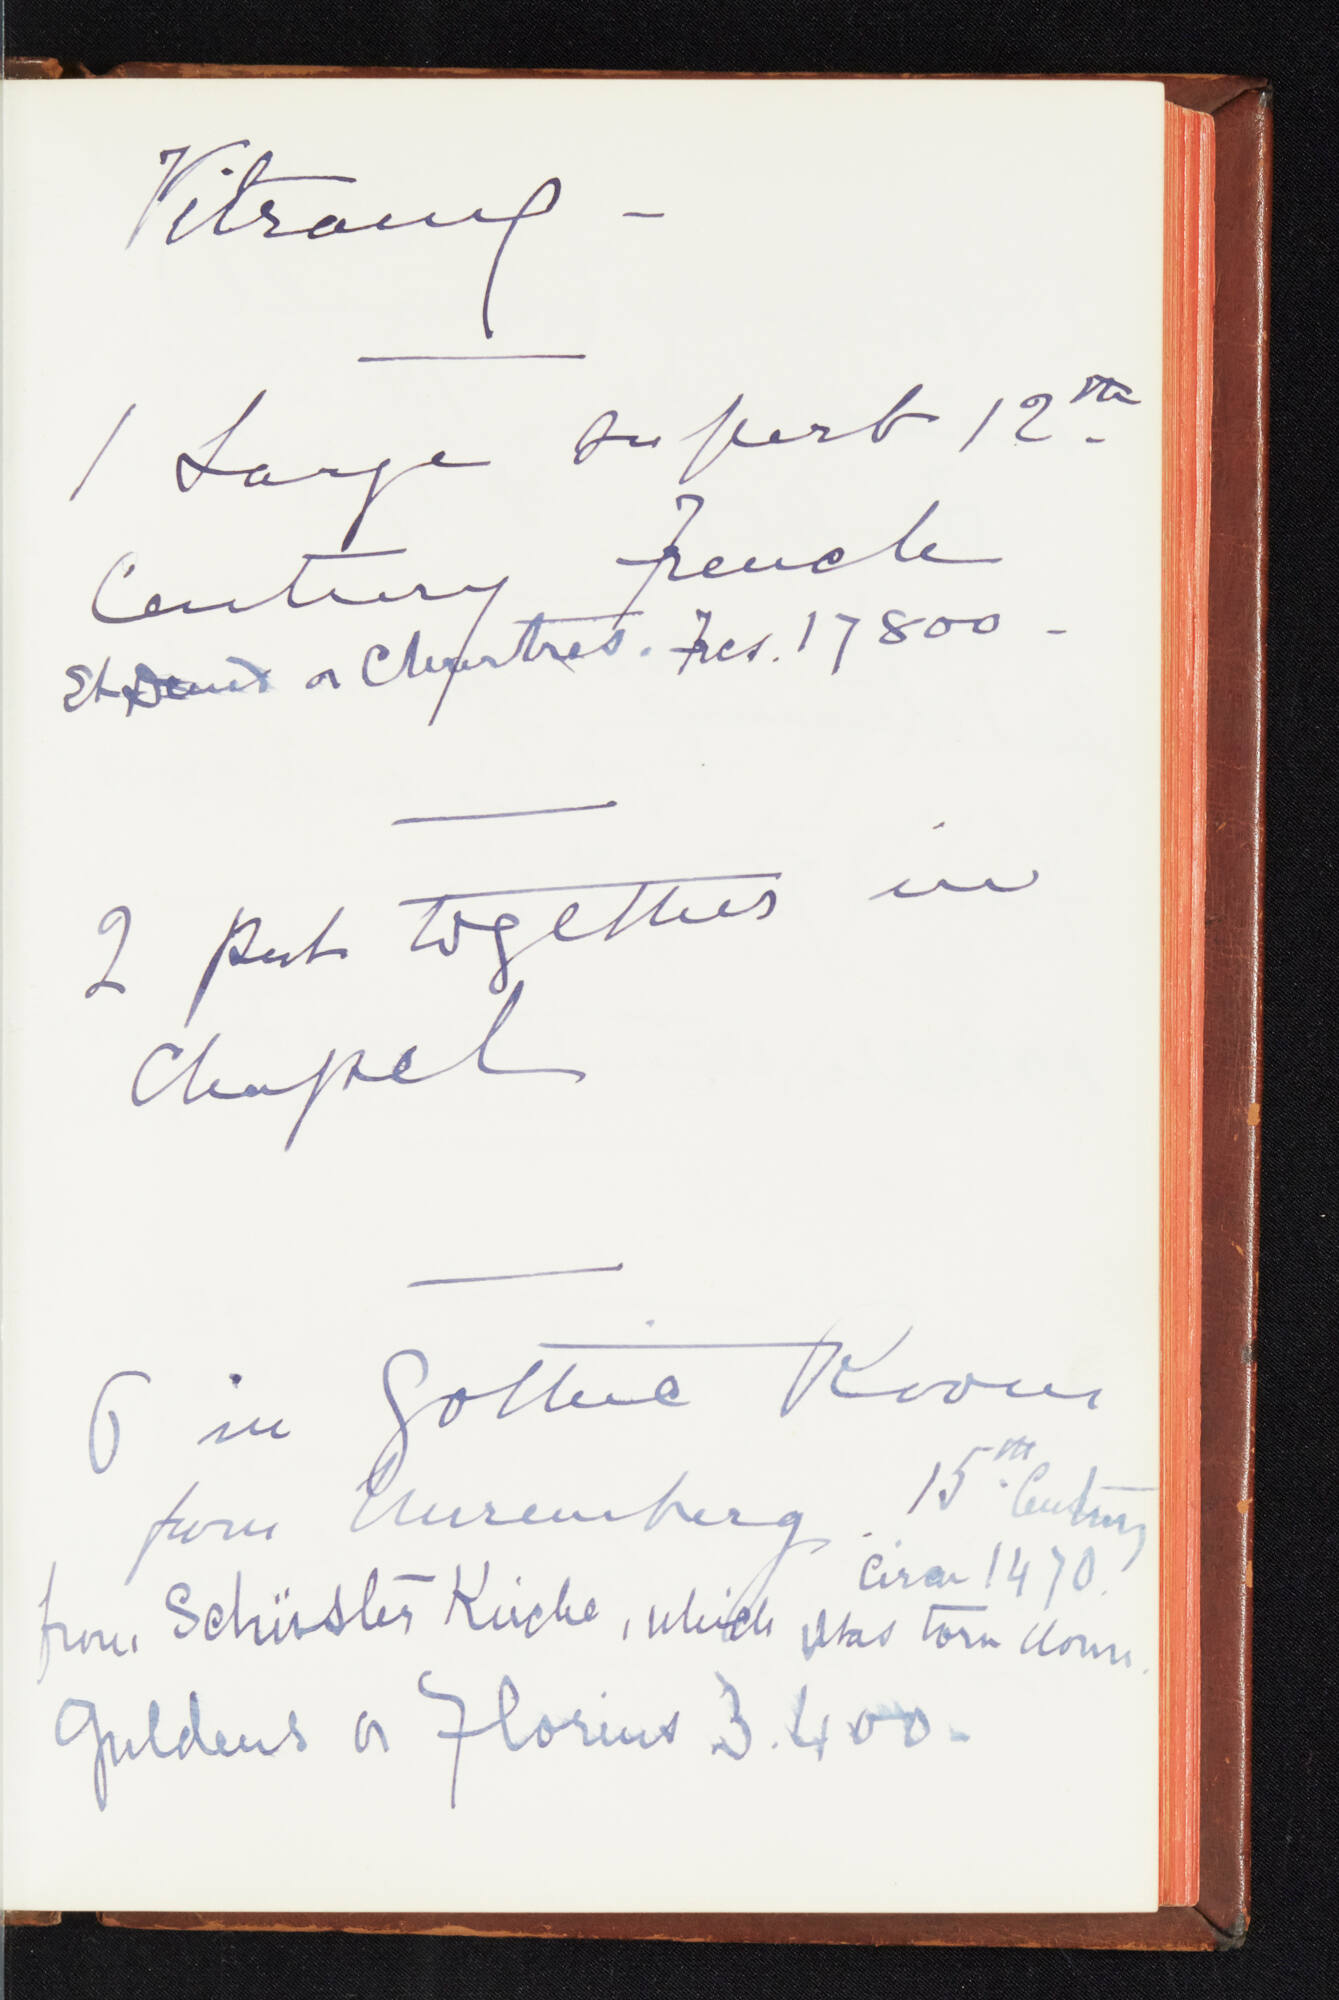 Vitraux -
1 Large superb 12th
Century French
St Denis or Chartres. Frcs. 17800 -
2 put together in
Chapel
6 in Gothic Room
from Nuremberg. 15th Century
circa 1470.
from Schüssler Kirche, which was torn down.
Guldens or Florins 3.400 -